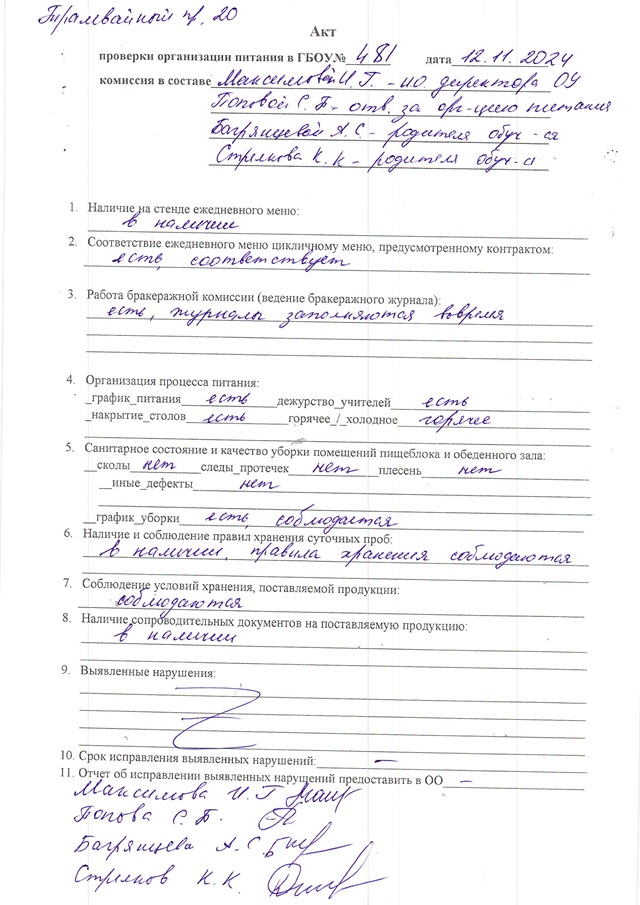 Трамвайный пр. 20
Акт
проверки организации питания в ГБОУ№ 481 дата 12.11.2024
комиссия в составе Максимовой И. Г. - ио. директора ОУ
Поповой С. Б - отв. за орг-цию питания
Багрянцевой А. С - родителя обуч-ся
Стрелкова К. К - родителя обуч-ся
1. Наличие на стенде ежедневного меню:
в наличии
2. Соответствие ежедневного меню цикличному меню, предусмотренному контрактом:
есть, соответствует
3. Работа бракеражной комиссии (ведение бракеражного журнала):
есть, журналы заполняются вовремя
4. Организация процесса питания:
_график_питания есть дежурство_учителей есть
_накрытие_столов есть горячее_/_холодное горячее
5. Санитарное состояние и качество уборки помещений пищеблока и обеденного зала:
__сколы нет следы_протечек нет плесень нет
__иные_дефекты нет
__график_уборки есть, соблюдается
6. Наличие и соблюдение правил хранения суточных проб:
в наличии, правила хранения соблюдаются
7. Соблюдение условий хранения, поставляемой продукции:
соблюдаются
8. Наличие сопроводительных документов на поставляемую продукцию:
в наличии
9. Выявленные нарушения:
10. Срок исправления выявленных нарушений: —
11. Отчет об исправлении выявленных нарушений предоставить в ОО —
Максимова И. Г
Попова С. Б.
Багрянцева А. С.
Стрелков К. К.